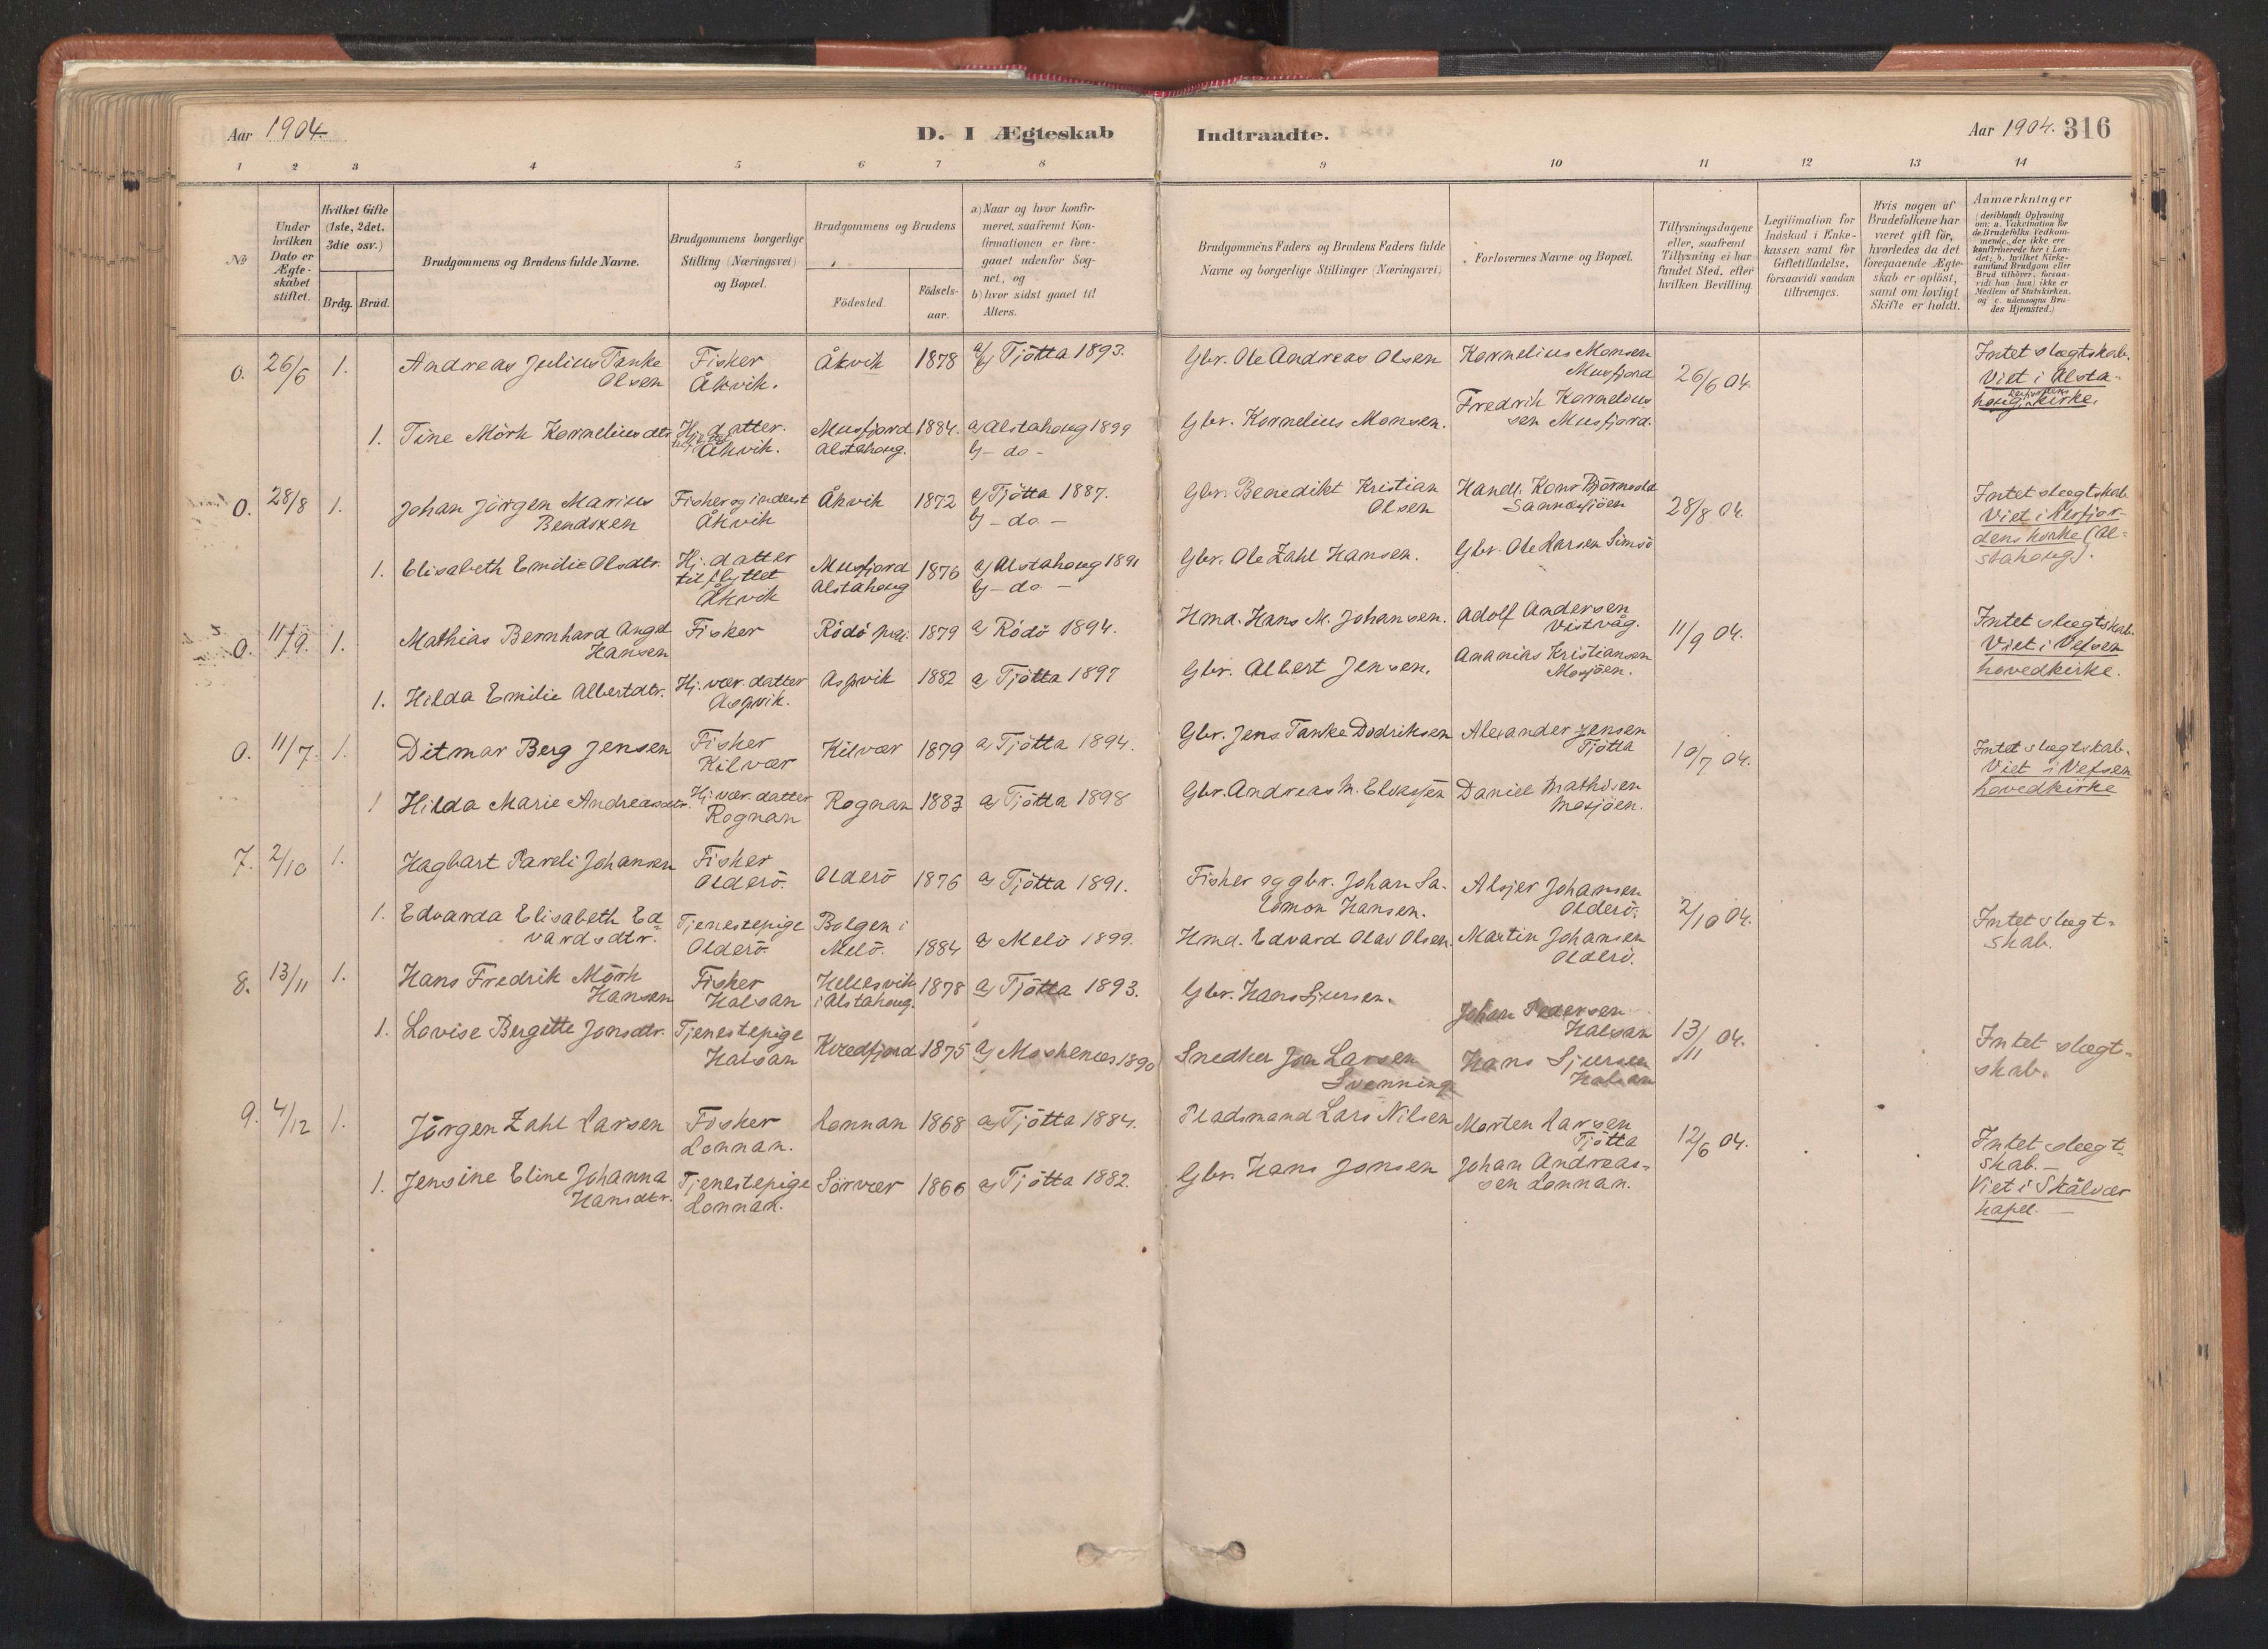 Aar 1904.
D. I Ægteskab
Indtraadte.
Aar 1904. 316
1 2 3 4 5 6 7 8 9 10 11 12 13 14
No
Under hvilken Dato er Ægteskabet stiftet.
Hvilket Gifte (1ste, 2det. 3die osv.)
Brdg. Brud.
Brudgommens og Brudens fulde Navne.
Brudgommens borgerlige Stilling (Næringsvei) og Bopæl.
Brudgommens og Brudens
Födested.
Födselsaar.
a) Naar og hvor konfirmeret, saafremt Konfirmationen er foregaaet udenfor Sognet, og
b) hvor sidst gaaet til Alters.
Brudgommens Faders og Brudens Faders fulde Navne og borgerlige Stillinger (Næringsvei)
Forlovernes Navne og Bopæl.
Tillysningsdagene eller, saafremt Tillysning ei har fundet Sted, efter hvilken Bevilling
Legitimation for Indskud i Enkekassen samt for Giftetilladelse, forsaavidt saadan tiltrænges.
Hvis nogen af Brudefolkene har været gift för, hvorledes da det foregaaende Ægteskab er oplöst, samt om lovligt Skifte er holdt.
Anmærkninger
(deriblandt Oplysning om: a. Vakcination for de Brudefolks Vedkommende, der ikke ere konfirmerede her i Landet; b. hvilket Kirkesamfund Brudgom eller Brud tilhörer, forsaavidt han (hun) ikke er Medlem af Statskirken, og c. udensogns Brudes Hjemsted.)
0. 26/6 1. Andreas Julius Tanke Olsen Fisker Åkvik. Åkvik 1878 Tjötta 1893. Gbr. Ole Andreas Olsen Kornelius Monsen Musfjord 26/6 04. Intet slægtskab. Viet i Alstahoug kirke.
1. Tine Mörk Korneliusdtr. Hj. datter. Åkvik. Musfjord Alstahoug. 1884. a) Alstahoug 1899 b) - do - Gbr. Kornelius Monsen. Fredrik Korneliussen Musfjord.
0. 28/8 1. Johan Jörgen Marius Bendsken Fisker og inderst Åkvik Åkvik 1872 a) Tjötta 1887. b) - do - Gbr. Benedikt Kristian Olsen Handl. Konr. Björnvold Sannesjöen 28/8 04. Intet slægtskab Viet i Lerfjordens kirke (Alstahoug).
1. Elisabeth Emilie Olsdtr. Hj. datter tilflyttet Åkvik Musfjord Alstahoug 1876 a) Alstahoug 1891 b) - do - Gbr. Ole Zahl Hansen. Gbr. Ole Larsen Simsö
0. 11/9. 1. Mathias Bernhard Angel Hansen Fisker Rödö 1879 a) Rödö 1894. Hmd. Hans M. Johansen. Adolf Andersen Vistvåg. 11/9 04. Intet slægtskab. Viet i Vefsen hovedkirke.
1. Hilda Emilie Albertdtr. Hj. vær. datter Aspvik. Aspvik 1882 a) Tjötta 1897 Gbr. Albert Jensen. Ananias Kristiansen Mosjöen.
0. 11/7 1. Ditmar Berg Jensen Fisker Kilvær Kilvær 1879 a) Tjötta 1894. Gbr. Jens Tanke Dodriksen Alexander Jensen Tjötta 10/7 04. Intet slægtskab. Viet i Vefsen hovedkirke
1 Hilda Marie Andreasdtr. Hj. vær. datter Rognan Rognan 1883 a) Tjötta 1898 Gbr. Andreas M. Eliassen Daniel Mathisen Mosjöen.
7. 2/10 1. Hagbart Pareli Johansen Fisker Olderö. Olderö 1876 a) Tjötta 1891. Fisker og gbr. Johan Salomon Hansen. Johansen Olderö. 2/10 04. Intet slægtskab.
1. Edvarda Elisabeth Edvardsdtr. Tjenestepige Olderö. Bolgen i Melö. 1884 a) Melö 1899. Hmd. Edvard Olav Olsen. Martin Johansen Olderö.
8. 13/11 1. Hans Fredrik Mörk Hansen Fisker Halsan Hellesvik i Alstahoug. 1878 a) Tjötta 1893. Gbr. Hans Sjursen. Johan Pedersen Halsan 13/11 04. Intet slægtskab.
1. Lovise Bergitte Jonsdtr. Tjenestepige Halsan Kvædfjord 1875 a) Moskenes 1890 Snedker Jon Larsen Svenning Hans Sjursen Halsan
9. 4/12 1. Jörgen Zahl Larsen Fisker Lonnan. Lonnan 1868 a) Tjötta 1884. Pladsmand Lars Nilsen Morten Larsen Tjötta 12/6 04. Intet slægtskab. - Viet i Skålvær kapel. -
1. Jensine Eline Johanna Hansdtr. Tjenestepige Lonnan. Sörvær 1866 a) Tjötta 1882. Gbr. Hans Jonsen Johan Andreassen Lonnan.